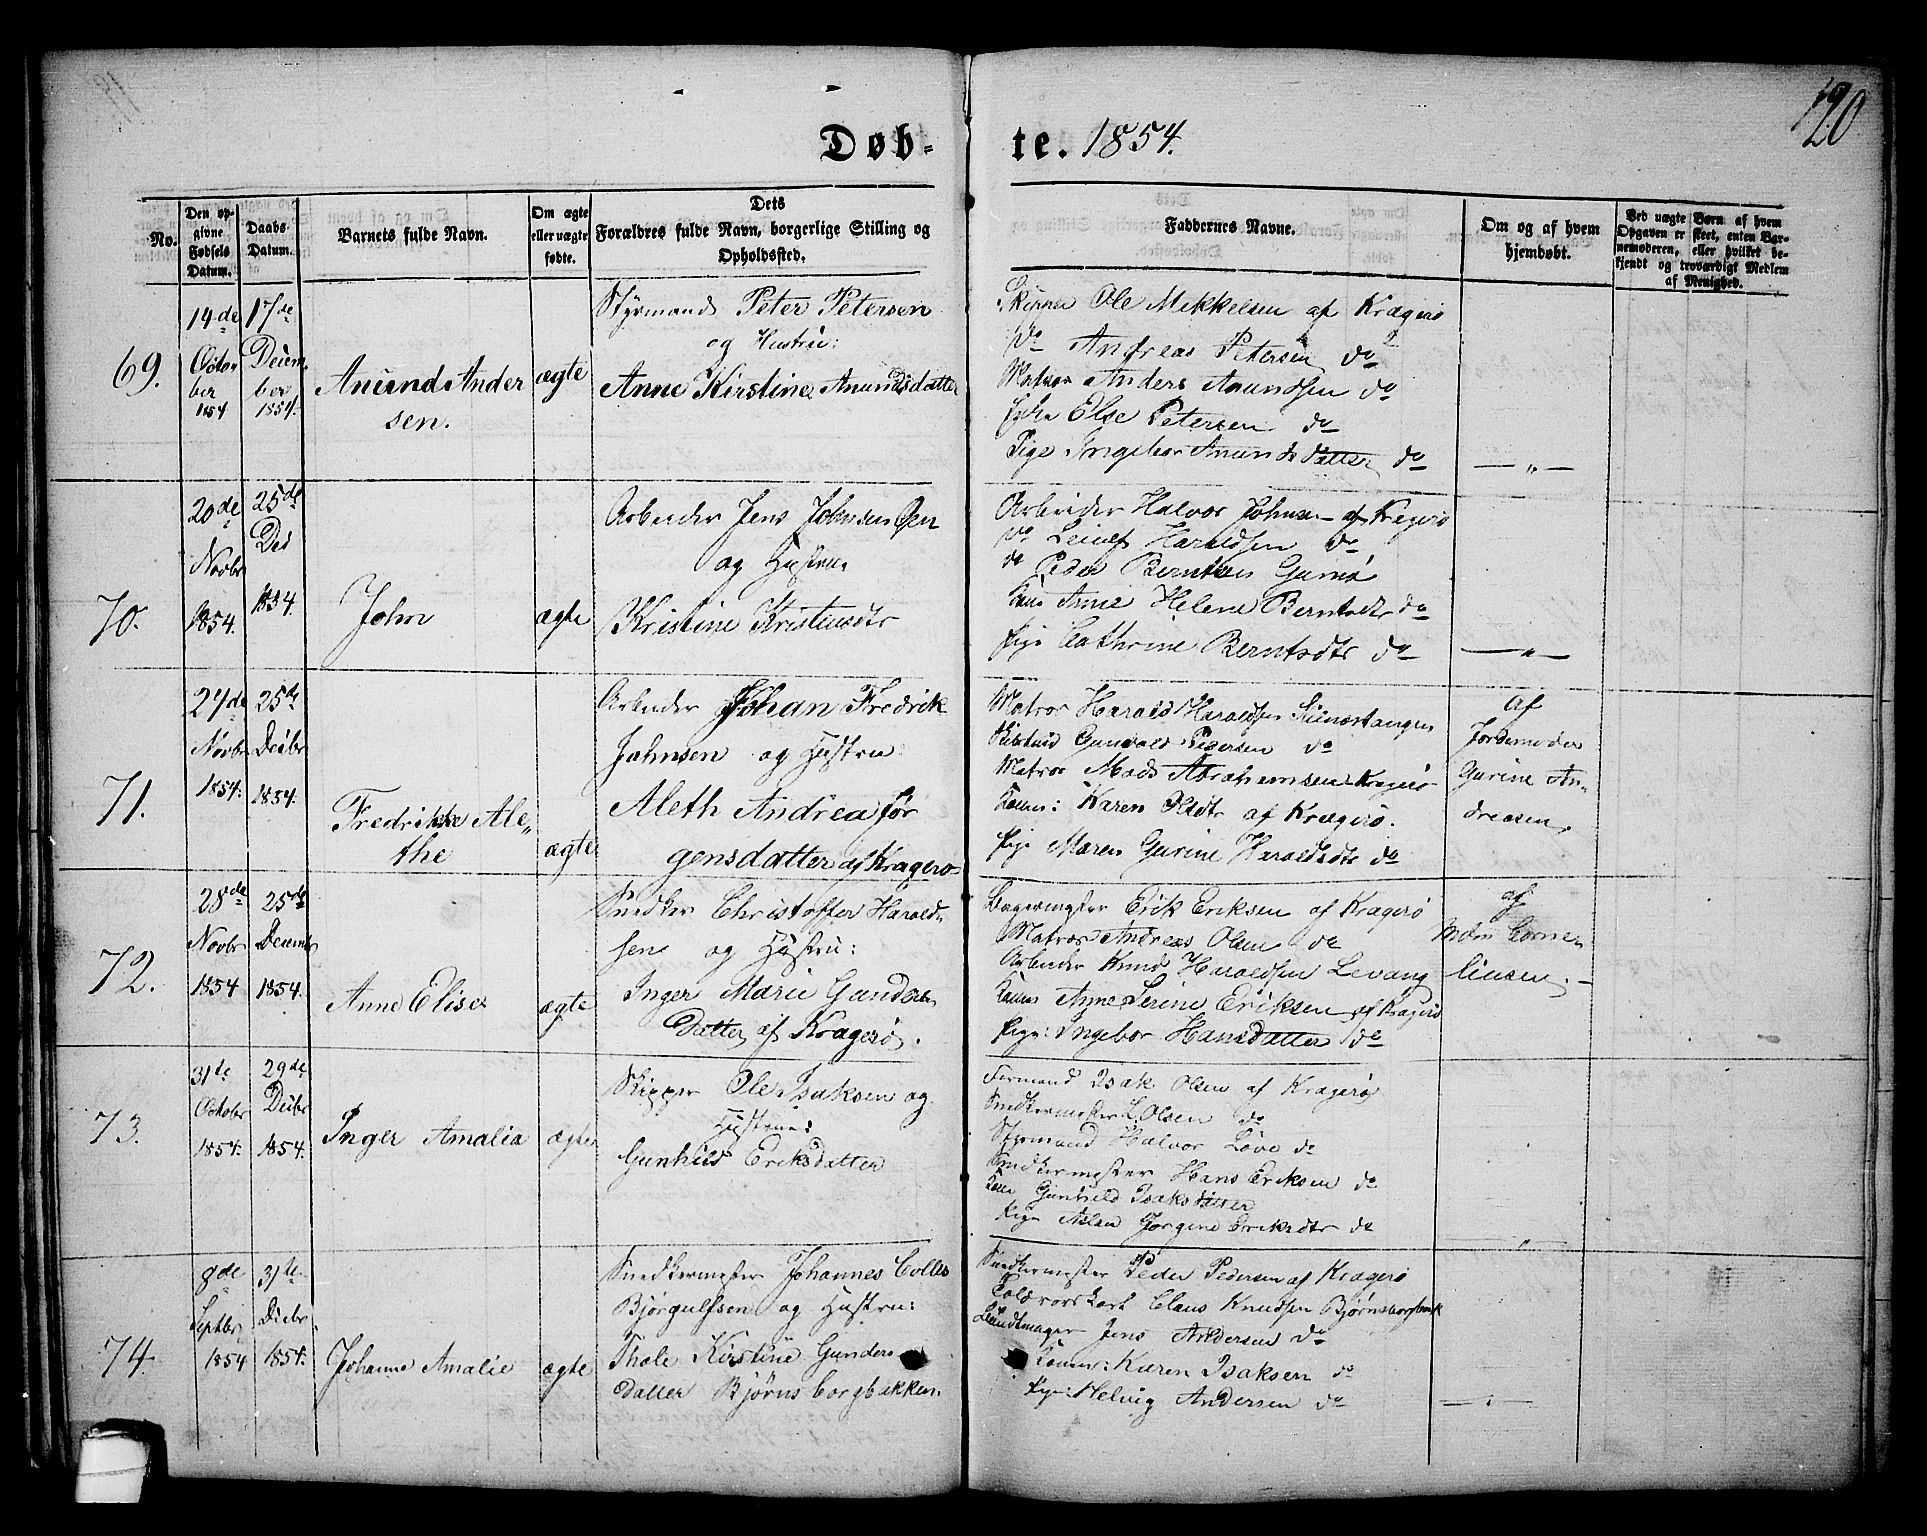 120
Døb- te. 1854.
No.
Den op-
givne
Fødsels
Datum.
Daabs-
Datum.
Barnets fulde Navn.
Om ægte
eller uægte
fødte.
Dets
Forældres fulde Navn, borgerlige Stilling og
Opholdssted.
Faddernes Navne.
Om og af hvem
hjemdøbt.
Ved uægte Børn af hvem
Opgaven er skeet, enten Bar-
nemoderen, eller hvilket be-
kjendt og troværdigt Medlem
af Menighed.
69.
14de
Octo-
ber
1854
17de
Decem-
ber
1854.
Anund Ander
sen.
ægte
Styrmand Peter Petersen
og Hustru:
Anne Kirstine Anundsdatter
Skipper Ole Mikkelsen af Kragerø
do Andreas Petersen do
Matros Anders Anundsen do
Else Petersen do
Pige Ingebor Anundsdatter do
— „ —
70.
20de
Novbr
1854.
25de
Des
1854.
John
ægte
Arbeider Jens Johnsen Øen
og Hustru
Kristine Kristensdtr
Arbeider Halvor Johnsen af Kragerø
do Leiulf Haraldsen do
do Peder Berntsen Gumø
Kone Anne Helene Berntsdtr do
Pige Cathrine Berntsdtr do
— „ —
71.
27de
Novbr
1854.
25de
Decbr
1854.
Fredrikke Ale-
the
ægte
Arbeider Johan Fredrik
Johnsen og Hustru:
Aleth Andrea Jør
gensdatter af Kragerø
Matros Harald Haraldsen
Gunvald Pedersen do
Matros Mads Abrahamsen Kragerø
Konen: Karen Olsdtr af Kragerø.
Pige Maren Gurine Haraldsdtr do
af
Jordemoder
Gurine An-
dreasen,
72.
28de
Novbr
1854
25de
Decembr
1854.
Anne Elise
ægte
Snedker Christoffer Harald-
sen og Hustru:
Inger Marie Gunders
Datter af Kragerø.
Bagermester Erik Eriksen af Kragerø
Matros Andreas Olsen do
Arbeider Knud Haraldsen Levang
Konen Anne Serine Eriksen af Kragerø
Pige: Ingebor Hansdatter do
af
Mdm Corne-
liusen. —
73.
31te
Octobr
1854.
29de
Decbr
1854.
Inger Amalia
ægte
Skipper Ole Isaksen og
Hustrue:
Gunhild Eriksdatter
Formand Isak Olsen af Kragerø
Snedkermester L. Olsen do
Styrmand Halvor Løve do
Snedkermester Hans Eriksen do
Kone Gunhild Isaksdatter
Pige Aslau Jørgine Eriksdtr do
— „ —
74.
8de
Septbr
1854
31te
Decbr.
1854.
Johanne Amalie
ægte
Snedkermester Johannes Colles
Bjørgulfsen og Hustru:
Thale Kirstine Gunders
datter Bjørnsborgbakken.
Snedkermester Peder Pedersen af Kragerø
Claus Knudsen Bjørnsborgbak
Jens Andersen do
Konen: Karen Isaksen do
Pige: Helvig Andersen do
— „ —